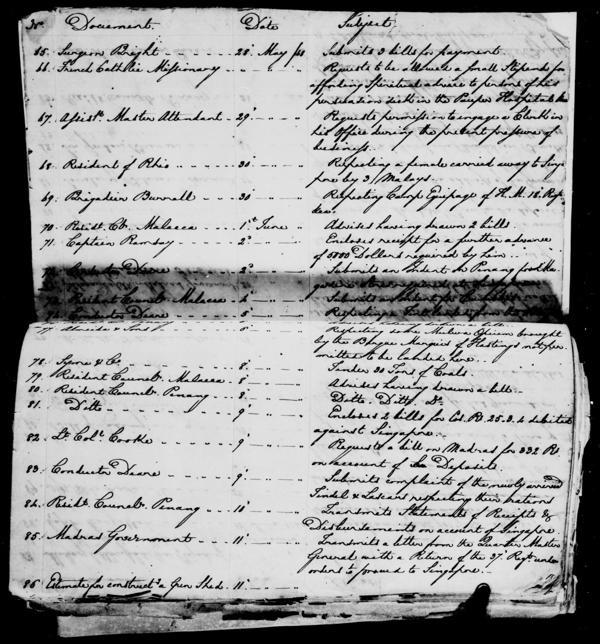 No. Document. Date Subject.
65. Surgeon Bright 28 May Submits 3 bills for payment.
66. French Catholic Missionary Requests to be allowed a small Stipend for
affording Spiritual advice to persons of his
persuasion sick in the Pauper Hospital
67. Assist. Master Attendant 29 Requests permission to engage a Clerk in
his Office during the present pressure of
business.
68. Resident of Rhio 30 Respecting a female carried away to Singa
pore by 3 Malays.
69. Brigadier Burrell 30 Respecting Camp Equipage of H. M. 18. Regt.
70. Residt. Cr. Malacca 1st June Advises having drawn 2 bills.
71. Captain Ramsay 2 Encloses receipt for a further advance
of 5500 Dollars required by him
Conductor Deane 2 Submits an Indent on Penang for
Resident Counclr. Malacca 4 Submits
Conductor Deane 5 Respecting
Respecting brought
by the Barque Marquis of Hastings not per
mitted to be landed here.
78. Syme & Co. 8 Tender 30 Tons of Coals.
79. Resident Counclr. Malacca 8 Advises having drawn a bill.
80. Resident Counclr. Penang 8 Ditto. Ditto. Do.
81. Ditto 9 Encloses 2 bills for Co. Rs. 25.3.4 debited
against Singapore.
82. Lt. Coll. Cooke 9 Requests a bill on Madras for 332 Rs.
on account of Deposits.
83. Conductor Deane 9 Submits complaint of the newly arrived
Tindal & Lascars respecting their rations
84. Residt. Counclr. Penang 10 Transmits Statements of Receipts &
Disbursements on account of Singapore.
85. Madras Government 11 Transmits a letter from the Quarter Master
General with a Return of the 27. Regt. under
orders to proceed to Singapore.
86. Estimate for constructg. a Gun Shed. 11